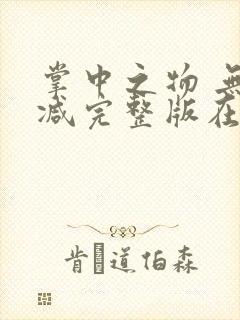 掌中之物 無
减完整版在
肯 道伯森